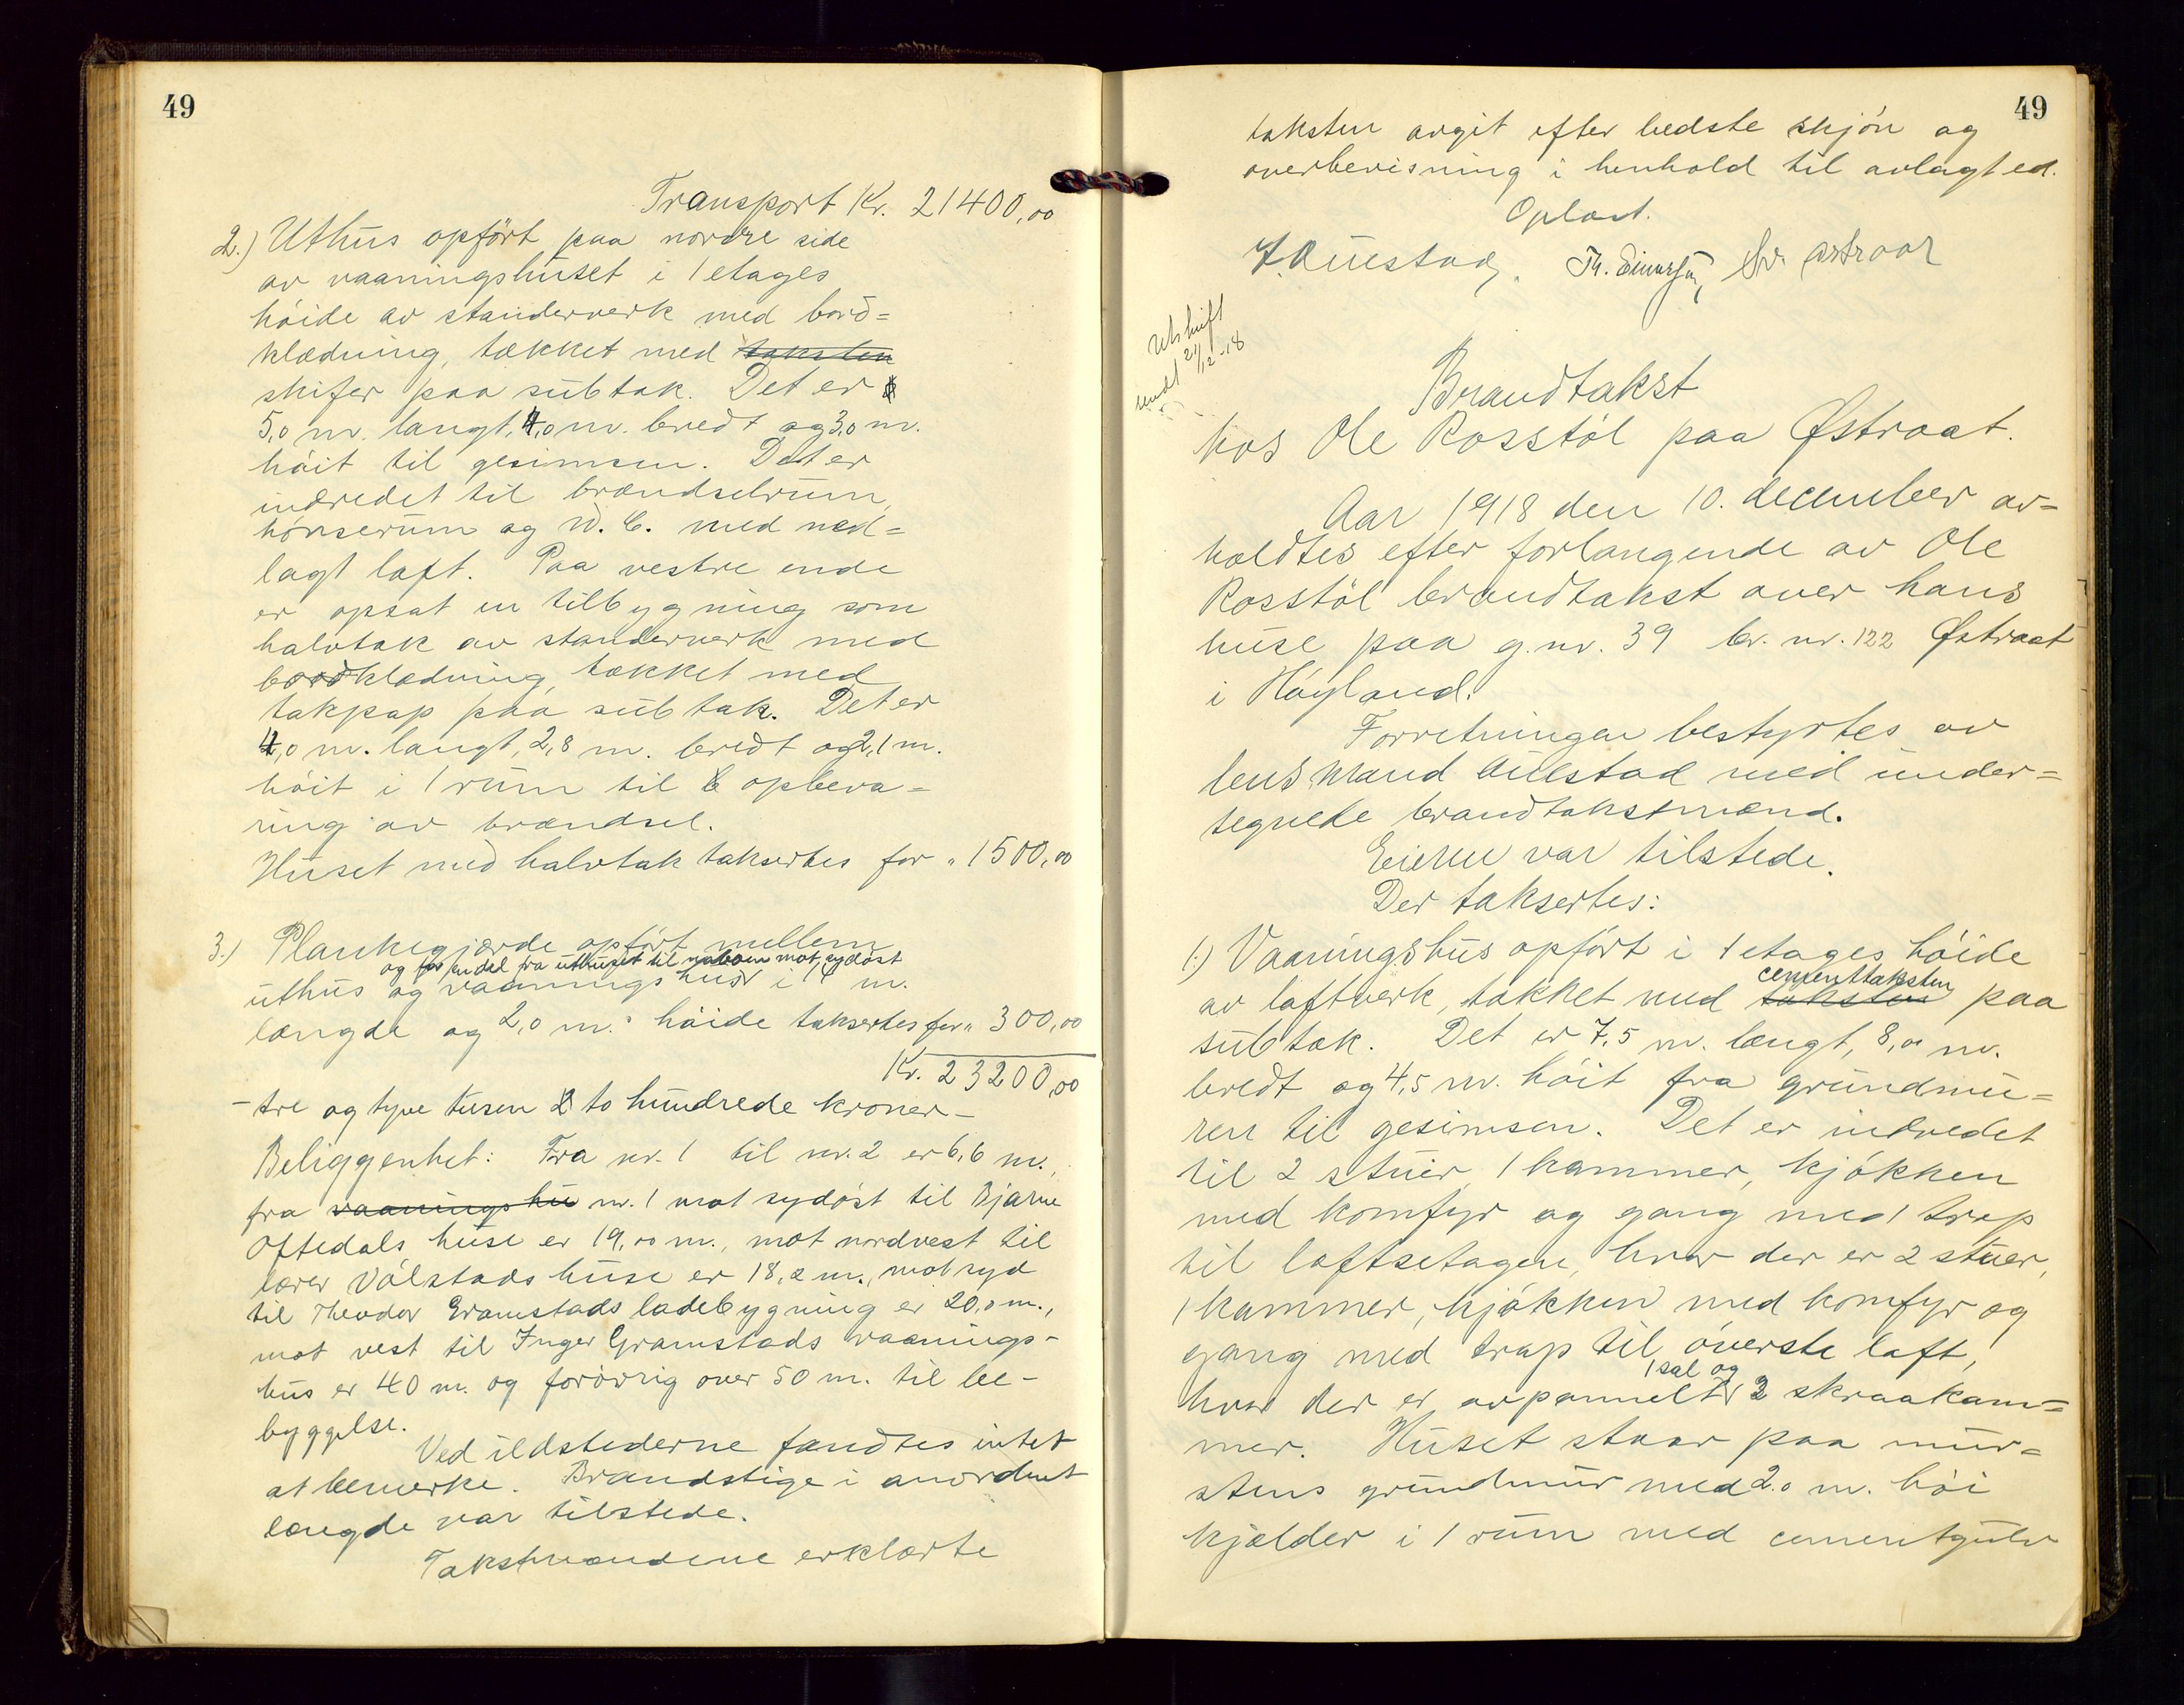 49
Transport Kr. 21400,00
2.) Uthus opført paa nordre side
av vaaningshuset i 1 etages
høide av standerverk med bord=
klædning, tækket med taksten
skifer paa subtak. Det er
5,0 m. langt, 4,0 m. bredt og 3,0 m.
høit til gesimsen. Det er
indredet til brændselrum,
hønserum og W. C. med ned=
lagt loft. Paa vestre ende
er opsat en tilbygning som
halvtak av standerverk med
bordklædning, tækket med
takpap paa subtak. Det er
4,0 m. langt, 2,8 m. bredt og 2,1 m.
høit i 1 rum til opbeva=
ring av brændsel.
Huset med halvtak taksertes for " 1500,00
3.) Plankegjærde opført mellem
og for endel fra uthuset til naboen mot sydøst
uthus og vaaningshus i 14 m.
længde og 2,0 m. høide taksertes for " 300,00
Kr. 23200,00
- tre og tyve tusen to hundrede kroner -
Beliggenhet: Fra nr. 1 til nr. 2 er 6,6 m.,
fra vaaningshu nr. 1 mot sydøst til Bjarne
Oftedals huse er 19,00 m., mot nordvest til
lærer Vølstads huse er 18,2 m., mot syd
til Theodor Gramstads ladebygning er 20,0 m.,
mot vest til Inger Gramstads vaanings-
hus er 40 m. og forøvrig over 50 m. til be-
byggelse.
Ved ildstederne fandtes intet
at bemerke. Brandstige i anordnet
længde var tilstede.
Takstmændene erklærte
49
taksten avgit efter bedste skjøn og
overbevisning i henhold til avlagt ed.
Oplæst.
Utskrift
sendt 21/12-18
Brandtakst
hos Ole Rosstøl paa Østraat.
Aar 1918 den 10. december av=
holdtes efter forlangende av Ole
Rosstøl brandtakst over hans
huse paa g.nr. 39 br. nr. 122 Østraat
i Høyland.
Forretningen bestyrtes av
lensmand Aulestad med under=
tegnede brandtakstmænd.
Eieren var tilstede.
Der taksertes:
1.) Vaaningshus opført i 1 etages høide
cementtaksten
av laftverk, tækket med taksten paa
subtak. Det er 7,5 m. langt, 8,0 m.
bredt og 4,5 m. høit fra grundmu=
ren til gesimsen. Det er indredet
til 2 stuer, 1 kammer, kjøkken
med komfyr og gang med trap
til loftsetagen, hvor der er 2 stuer,
1 kammer, kjøkken med komfyr og
gang med trap til øverste loft,
1 sal og
hvor der er avpanelt 2 skraakam=
mer. Huset staar paa mur=
stens grundmur med 2.0 m. høi
kjælder i 1 rum med cementgulv